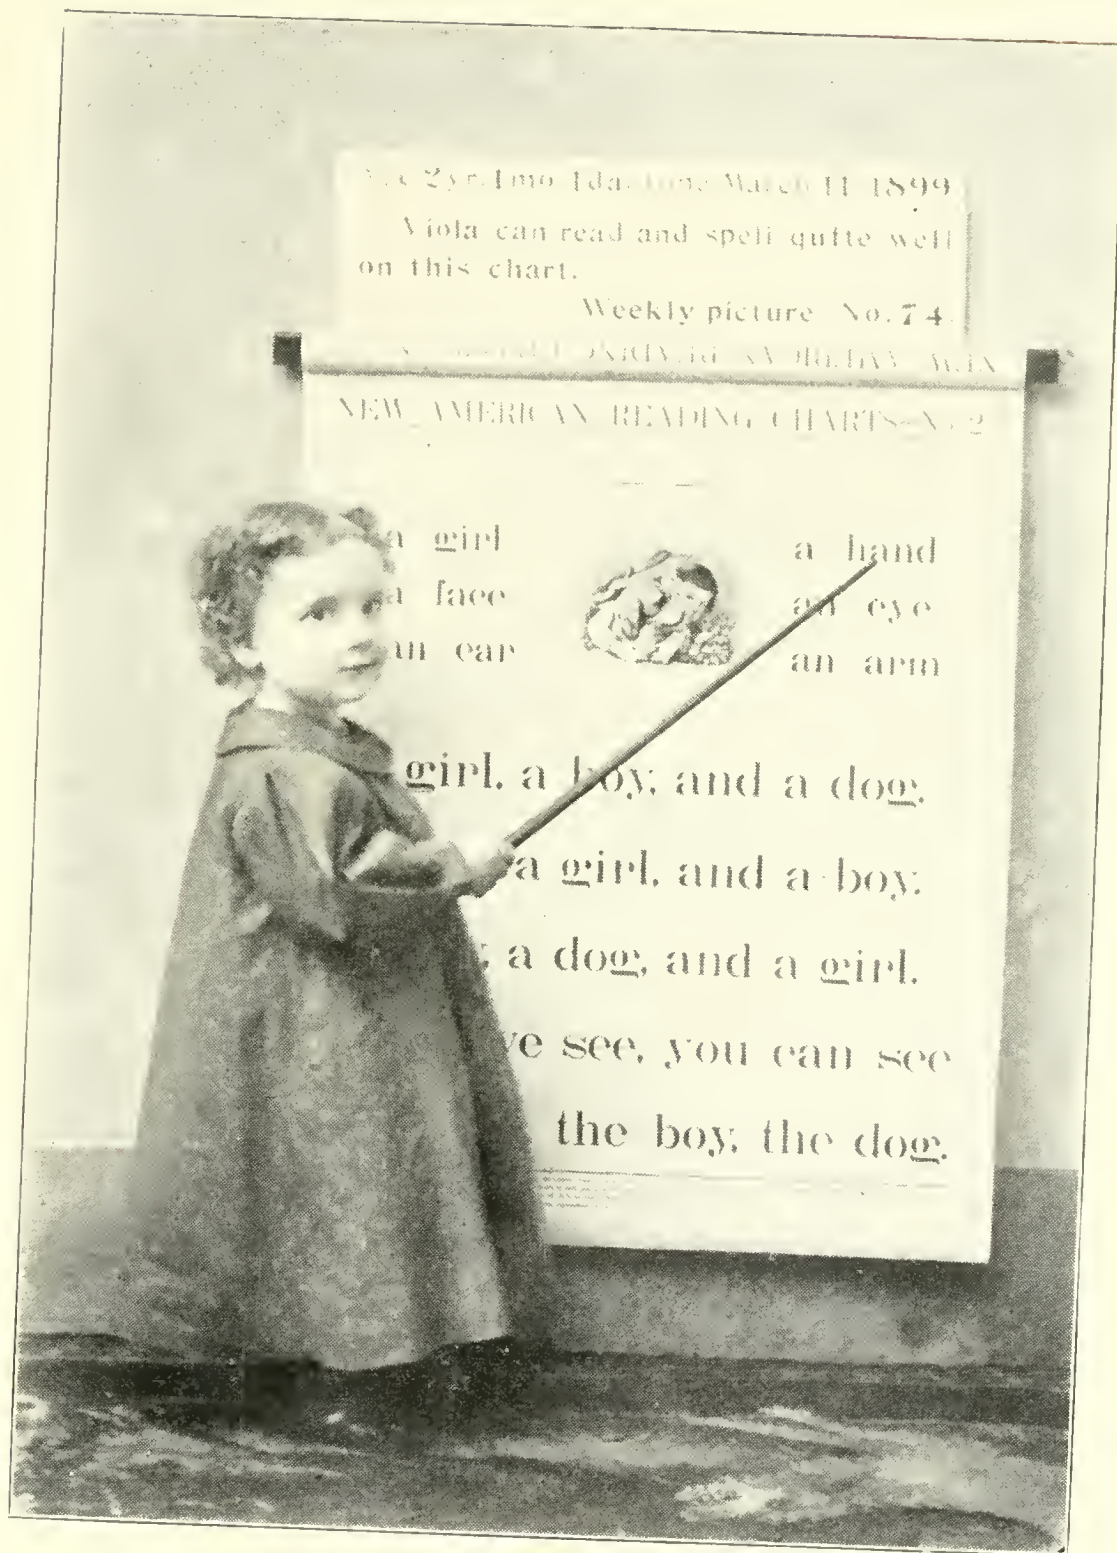 2yr. 1mo. 1da. March 11 1899
Viola can read and spell quite well
on this chart.
Weekly picture No. 74.
NEW AMERICAN READING CHARTS—No 2
a girl
a face
an ear
a hand
an eye
an arm
girl, a boy, and a dog.
a girl, and a boy.
a dog, and a girl.
see, you can see
the boy, the dog.